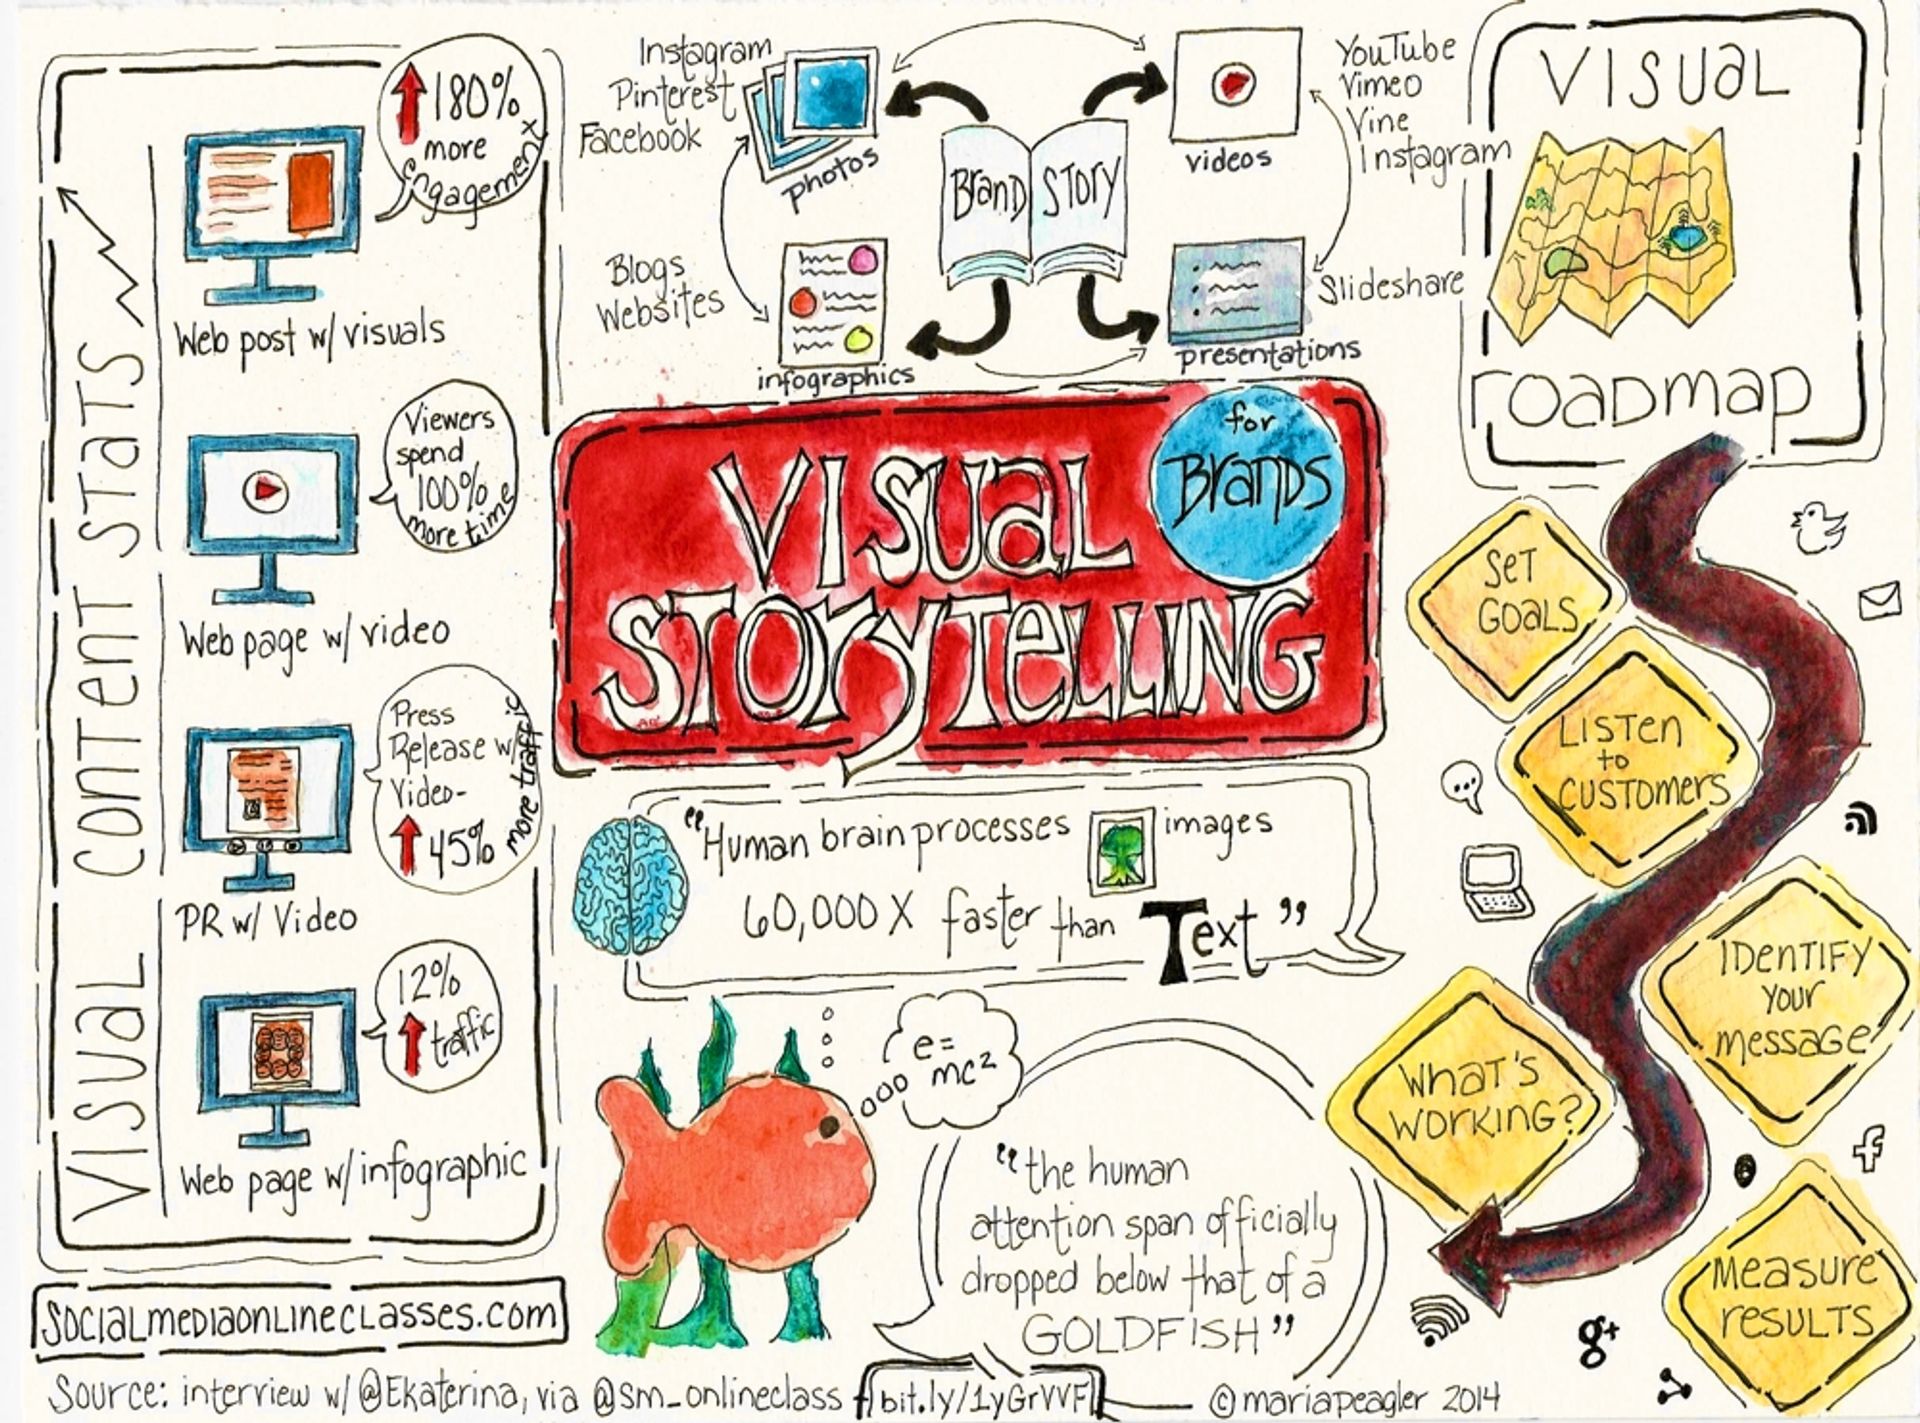 VISUAL CONTENT STATS
180%
more
Engagement
Web post w/ visuals
Viewers
spend
100%
more time
Web page w/ video
Press
Release w/
Video-
45%
more traffic
PR w/ Video
12%
traffic
Web page w/ infographic
SOCIALMEDIAONLINECLASSES.COM
Instagram
Pinterest
Facebook
photos
Brand Story
videos
YouTube
Vimeo
Vine
Instagram
Blogs
Websites
infographics
presentations
Slideshare
VISUAL
STORYTELLING
for
Brands
"Human brain processes images
60,000 X faster than Text"
e=
mc2
"the human
attention span officially
dropped below that of a
GOLDFISH"
VISUAL
roadmap
SET
GOALS
LISTEN
to
CUSTOMERS
IDENTIFY
your
message
WHAT'S
WORKING?
f
Measure
results
g+
Source: interview w/ @Ekaterina, via @sm_onlineclass bit.ly/1yGrVVF © mariapeagler 2014